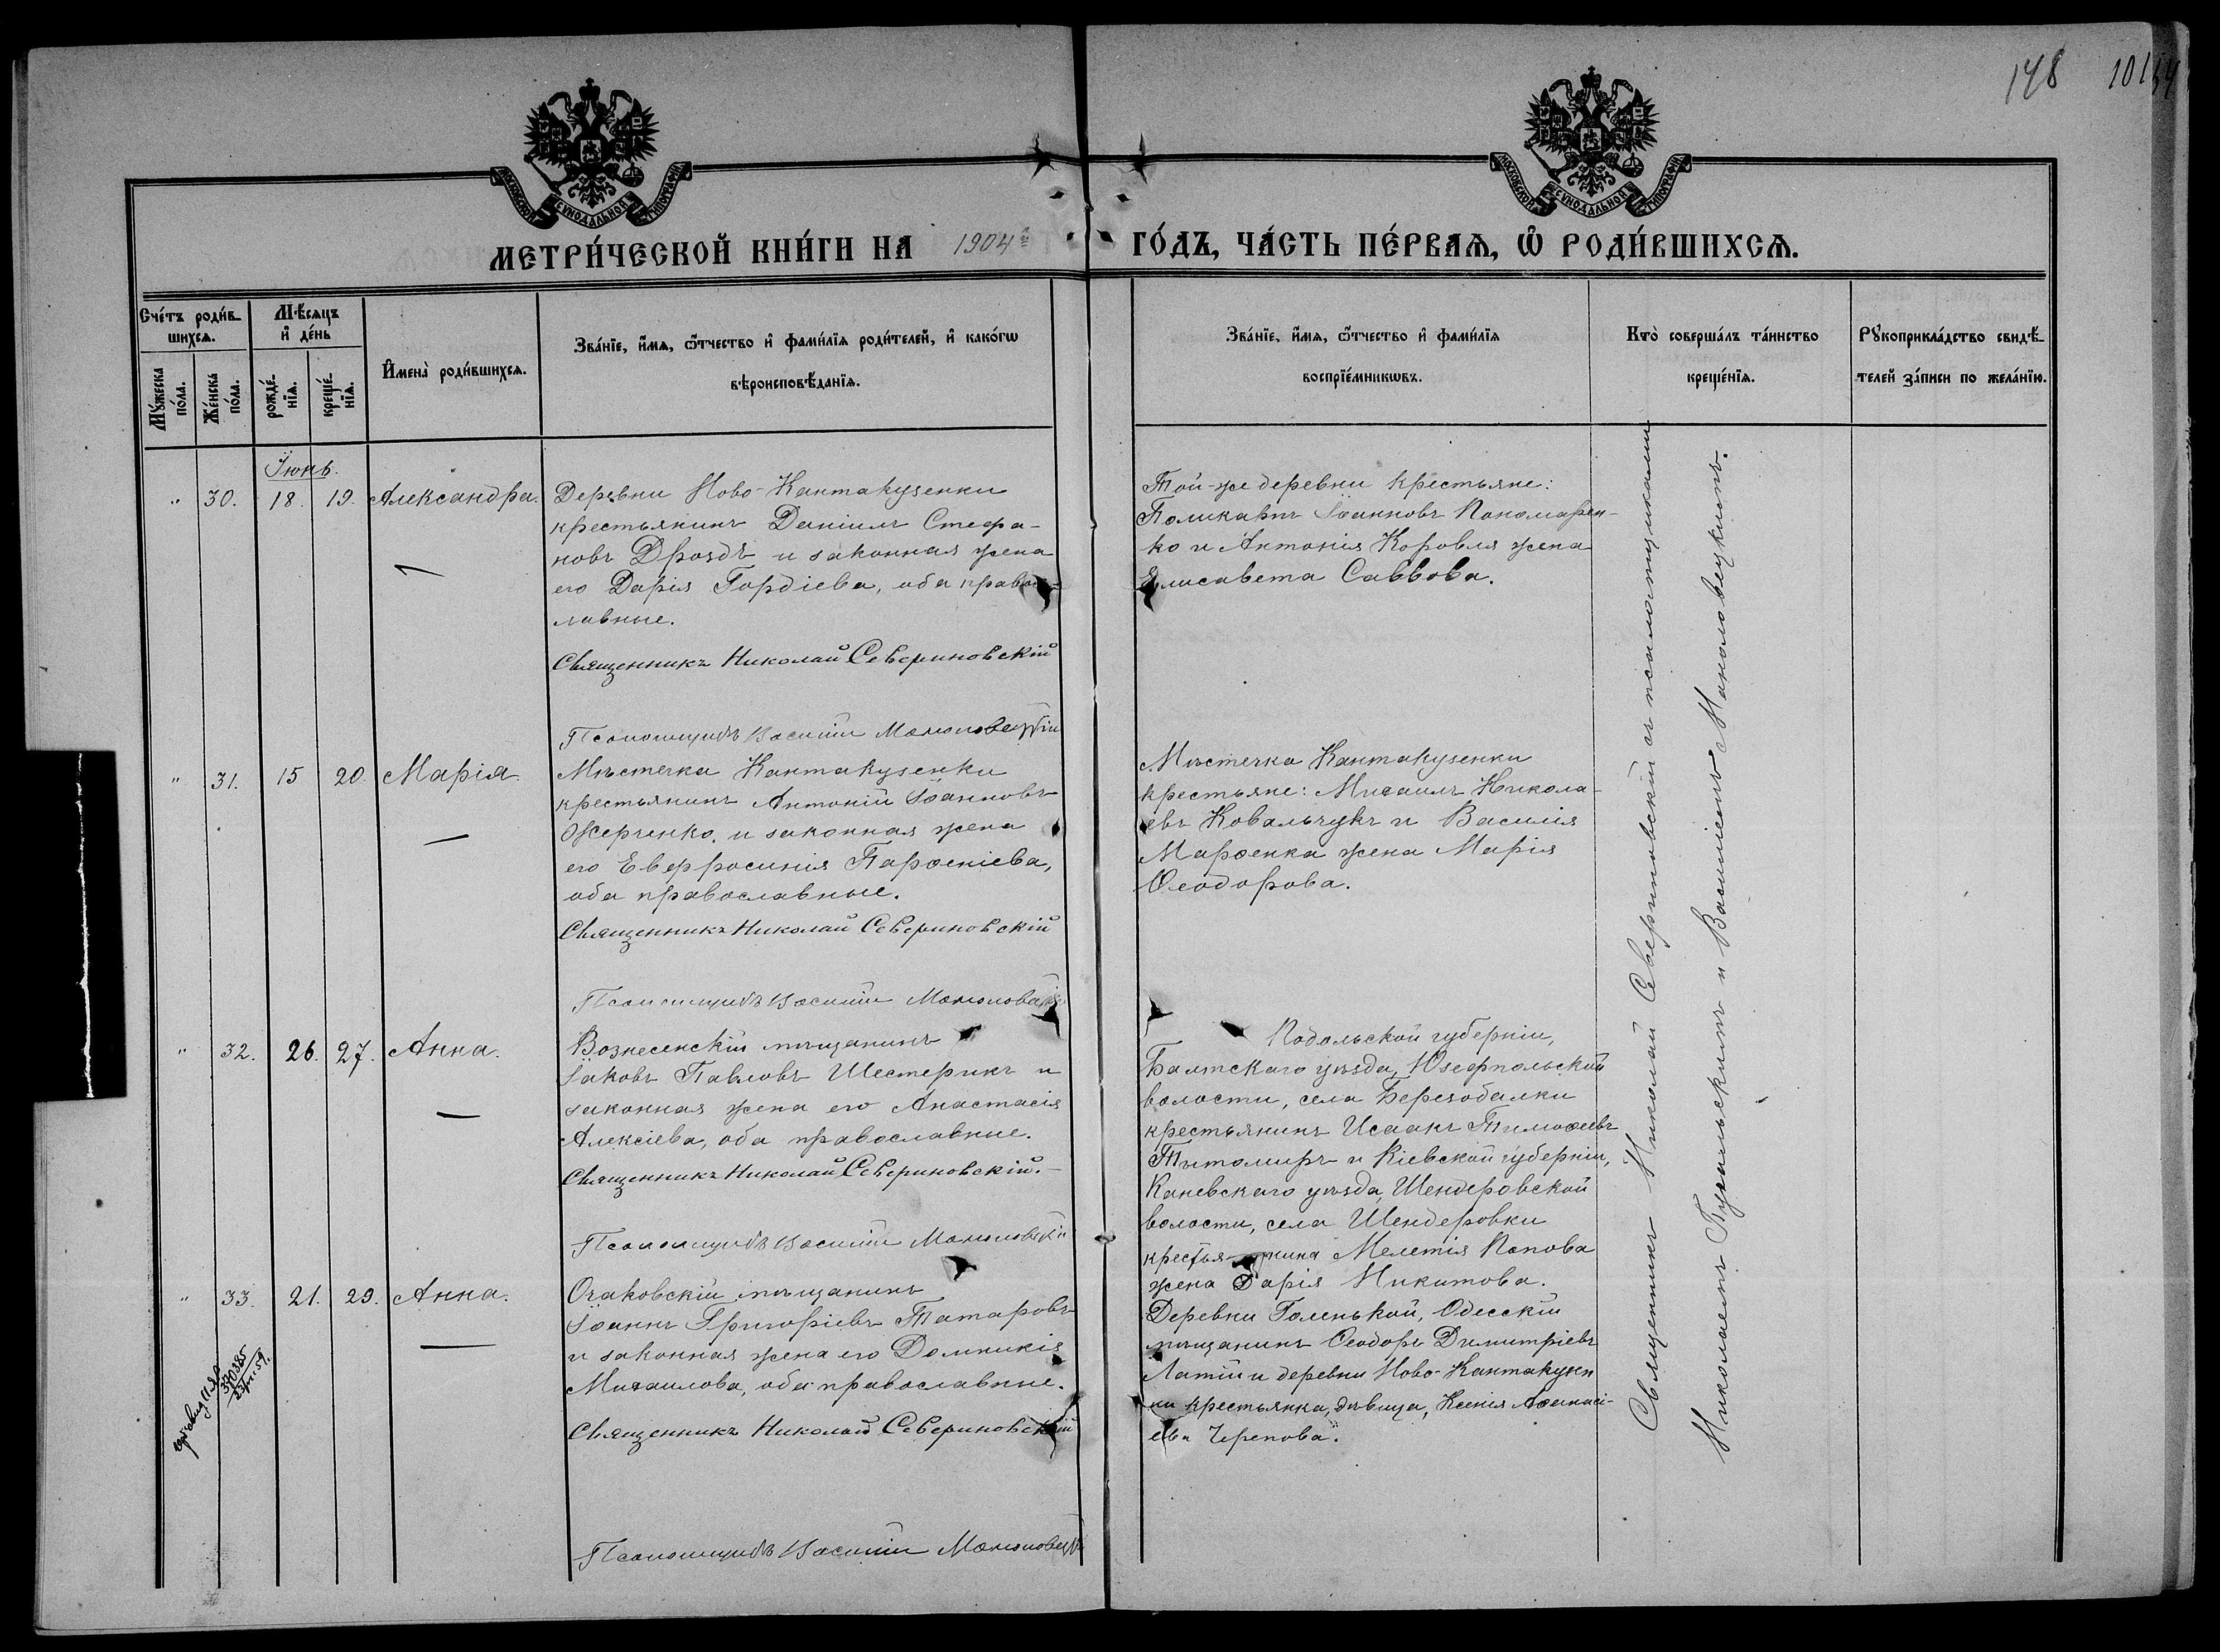 148 101
МОСКОВСКОЙ СѴНОДАЛЬНОЙ ТИПОГРАФІИ
МОСКОВСКОЙ СѴНОДАЛЬНОЙ ТИПОГРАФІИ
МЕТРИ́ЧЕСКОЙ КНИ́ГИ НА 1904й ГО́ДЪ, ЧА́СТЬ ПЕ́РВАѦ, Ѡ҆ РОДИ́ВШИХСѦ.
Сче́тъ роди́в-
шихсѧ.
Мꙋ́жеска по́ла.
Же́нска по́ла.
Мѣ́сѧцъ
и҆ де́нь
рожде́-
нїѧ.
креще́-
нїѧ.
И҆мена̀ роди́вшихсѧ.
Зва́нїе, и҆́мѧ, ѻ҆́тчество и҆ фами́лїѧ роди́телей, и҆ како́гѡ
вѣроисповѣ́данїѧ.
Зва́нїе, и҆́мѧ, ѻ҆́тчество и҆ фами́лїѧ
воспрїе́мникѡвъ.
Кто̀ соверша́лъ та́инство
креще́нїѧ.
Рꙋкоприкла́дство свидѣ́-
телей за́писи по жела́нїю.
Іюнь.
" 30. 18. 19. Александра.
Деревни Ново-Кантакузенки
крестьянинъ Даніилъ Стефа-
новъ Дроздъ и законная жена
его Дарія Гордіева, оба правос-
лавные.
Священникъ Николай Севериновскій
Псаломщикъ Василій Манолове
Той-же деревни крестьяне:
Поликарпъ Іоанновъ Пономарен-
ко и Антонія Коровля жена
Елисавета Саввова.
" 31. 15 20. Марія.
Мѣстечка Кантакузенки
крестьянинъ Антоній Іоанновъ
Жерченко, и законная жена
его Евфросинія Парѳеніева,
оба православные.
Священникъ Николай Севериновскій
Псаломщикъ Василій Манолове
Мѣстечка Кантакузенки
крестьяне: Михаилъ Никола-
евъ Ковальчукъ и Василія
Марѳенка жена Марія
Ѳеодорова.
" 32. 26. 27. Анна.
Вознесенскій мѣщанинъ
Іаковъ Павловъ Шестерикъ и
законная жена его Анастасія
Алексіева, оба православные.
Священникъ Николай Севериновскій.
Псаломщикъ Василій Маноловецкій
Подольской губерніи,
Балтскаго уѣзда, Юзефпольской
волости, села Березобалки
крестьянинъ Исаакъ Тимоѳеевъ
Тытомиръ и Кіевской губерніи,
Каневскаго уѣзда, Шендеровской
волости, села Шендеровки
крестьянина Мелетія Попова
жена Дарія Никитова.
" 33. 21. 29. Анна.
Очаковскій мѣщанинъ
Іоаннъ Григоріевъ Татаровъ
и законная жена его Домникія
Михаилова, оба православные.
Священникъ Николай Севериновскій
Псаломщикъ Василій Маноловецкій
Деревни Голенькой, Одесскій
мѣщанинъ Ѳеодоръ Димитріевъ
Латій и деревни Ново-Кантакузен
ки крестьянка, дѣвица, Ксенія Аѳанасі-
ева Черепова.
370385
Священникъ Николай Севериновскій съ псаломщиками
Николаемъ и Василіемъ Маноловецкимъ.